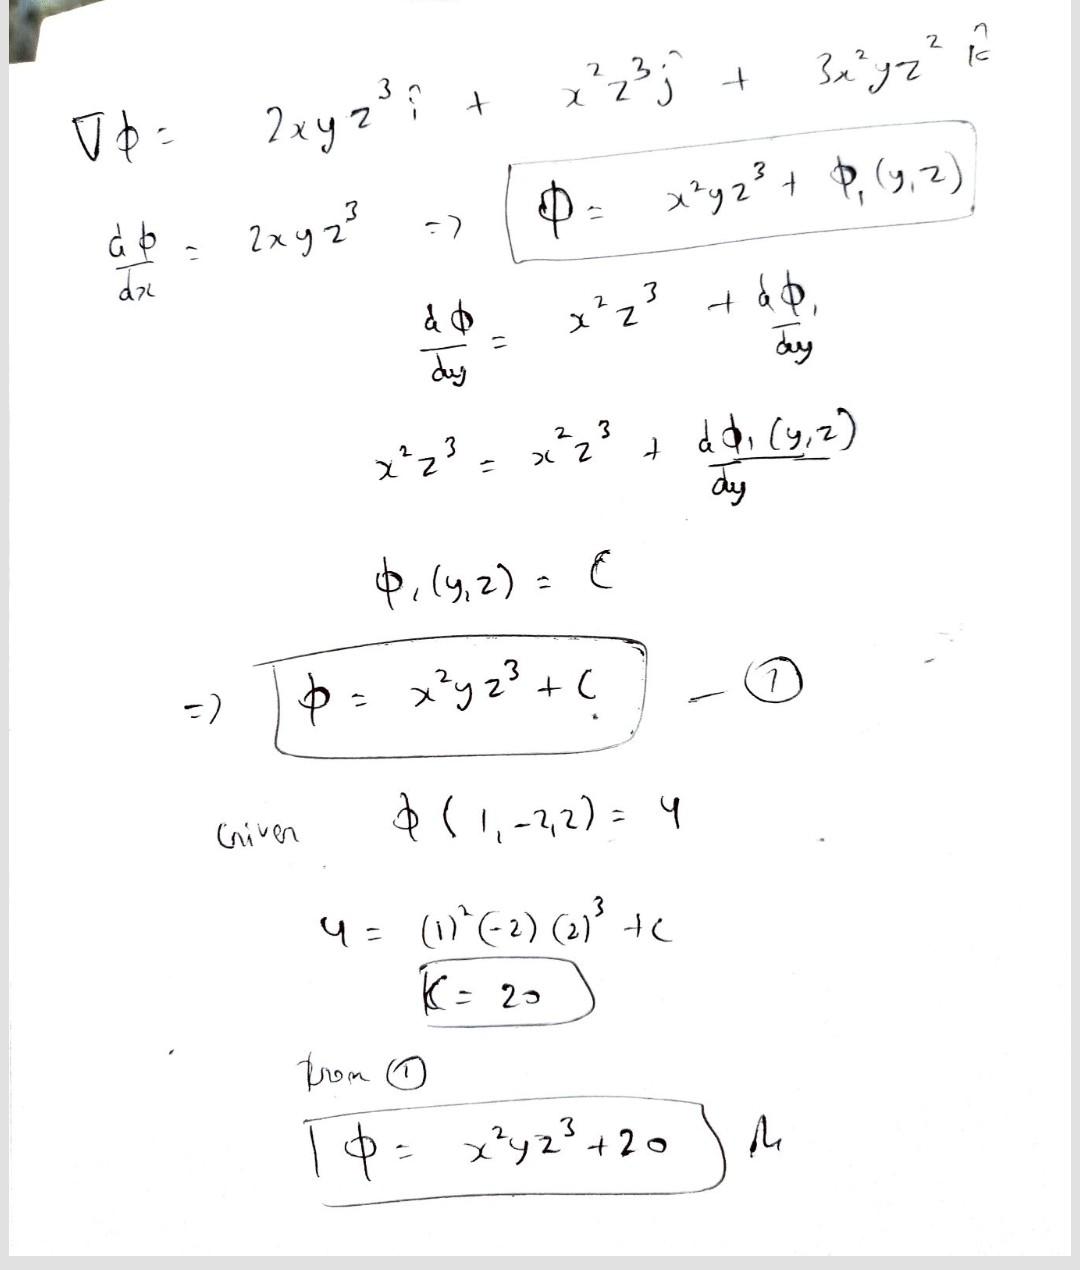 ∇ϕ = 2xyz³ î + x²z³ ĵ + 3x²yz² k̂
dϕ/dx = 2xyz³ => ϕ = x²yz³ + ϕ₁(y,z)
dϕ/dy = x²z³ + dϕ₁/dy
x²z³ = x²z³ + dϕ₁(y,z)/dy
ϕ₁(y,z) = C
=> ϕ = x²yz³ + C — ①
Given ϕ(1,-2,2) = 4
4 = (1)²(-2)(2)³ + c
K = 20
from ①
ϕ = x²yz³ + 20